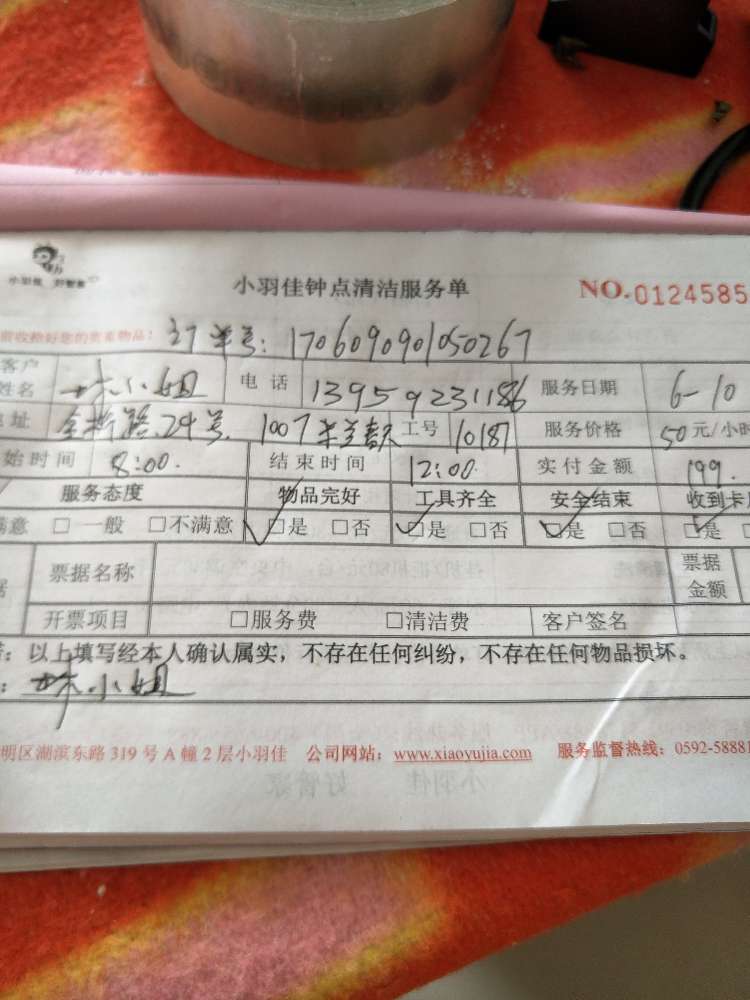 小羽佳 好管家
小羽佳钟点清洁服务单 NO.0124585
前收拾好您的贵重物品! 订单号: 1706090901050267
客户姓名 林小姐 电话 13959231186 服务日期 6-10
地址 24号 1007 工号 10187 服务价格 50元/小时
始时间 8:00. 结束时间 12:00 实付金额 199.
服务态度 物品完好 工具齐全 安全结束 收到卡
满意 □一般 □不满意 □是 □否 □是 □否 □是 □否 □是
据 票据名称 票据金额
开票项目 □服务费 □清洁费 客户签名
以上填写经本人确认属实,不存在任何纠纷,不存在任何物品损坏。
: 林小姐
明区湖滨东路319号A幢2层小羽佳 公司网站:www.xiaoyujia.com 服务监督热线:0592-58881